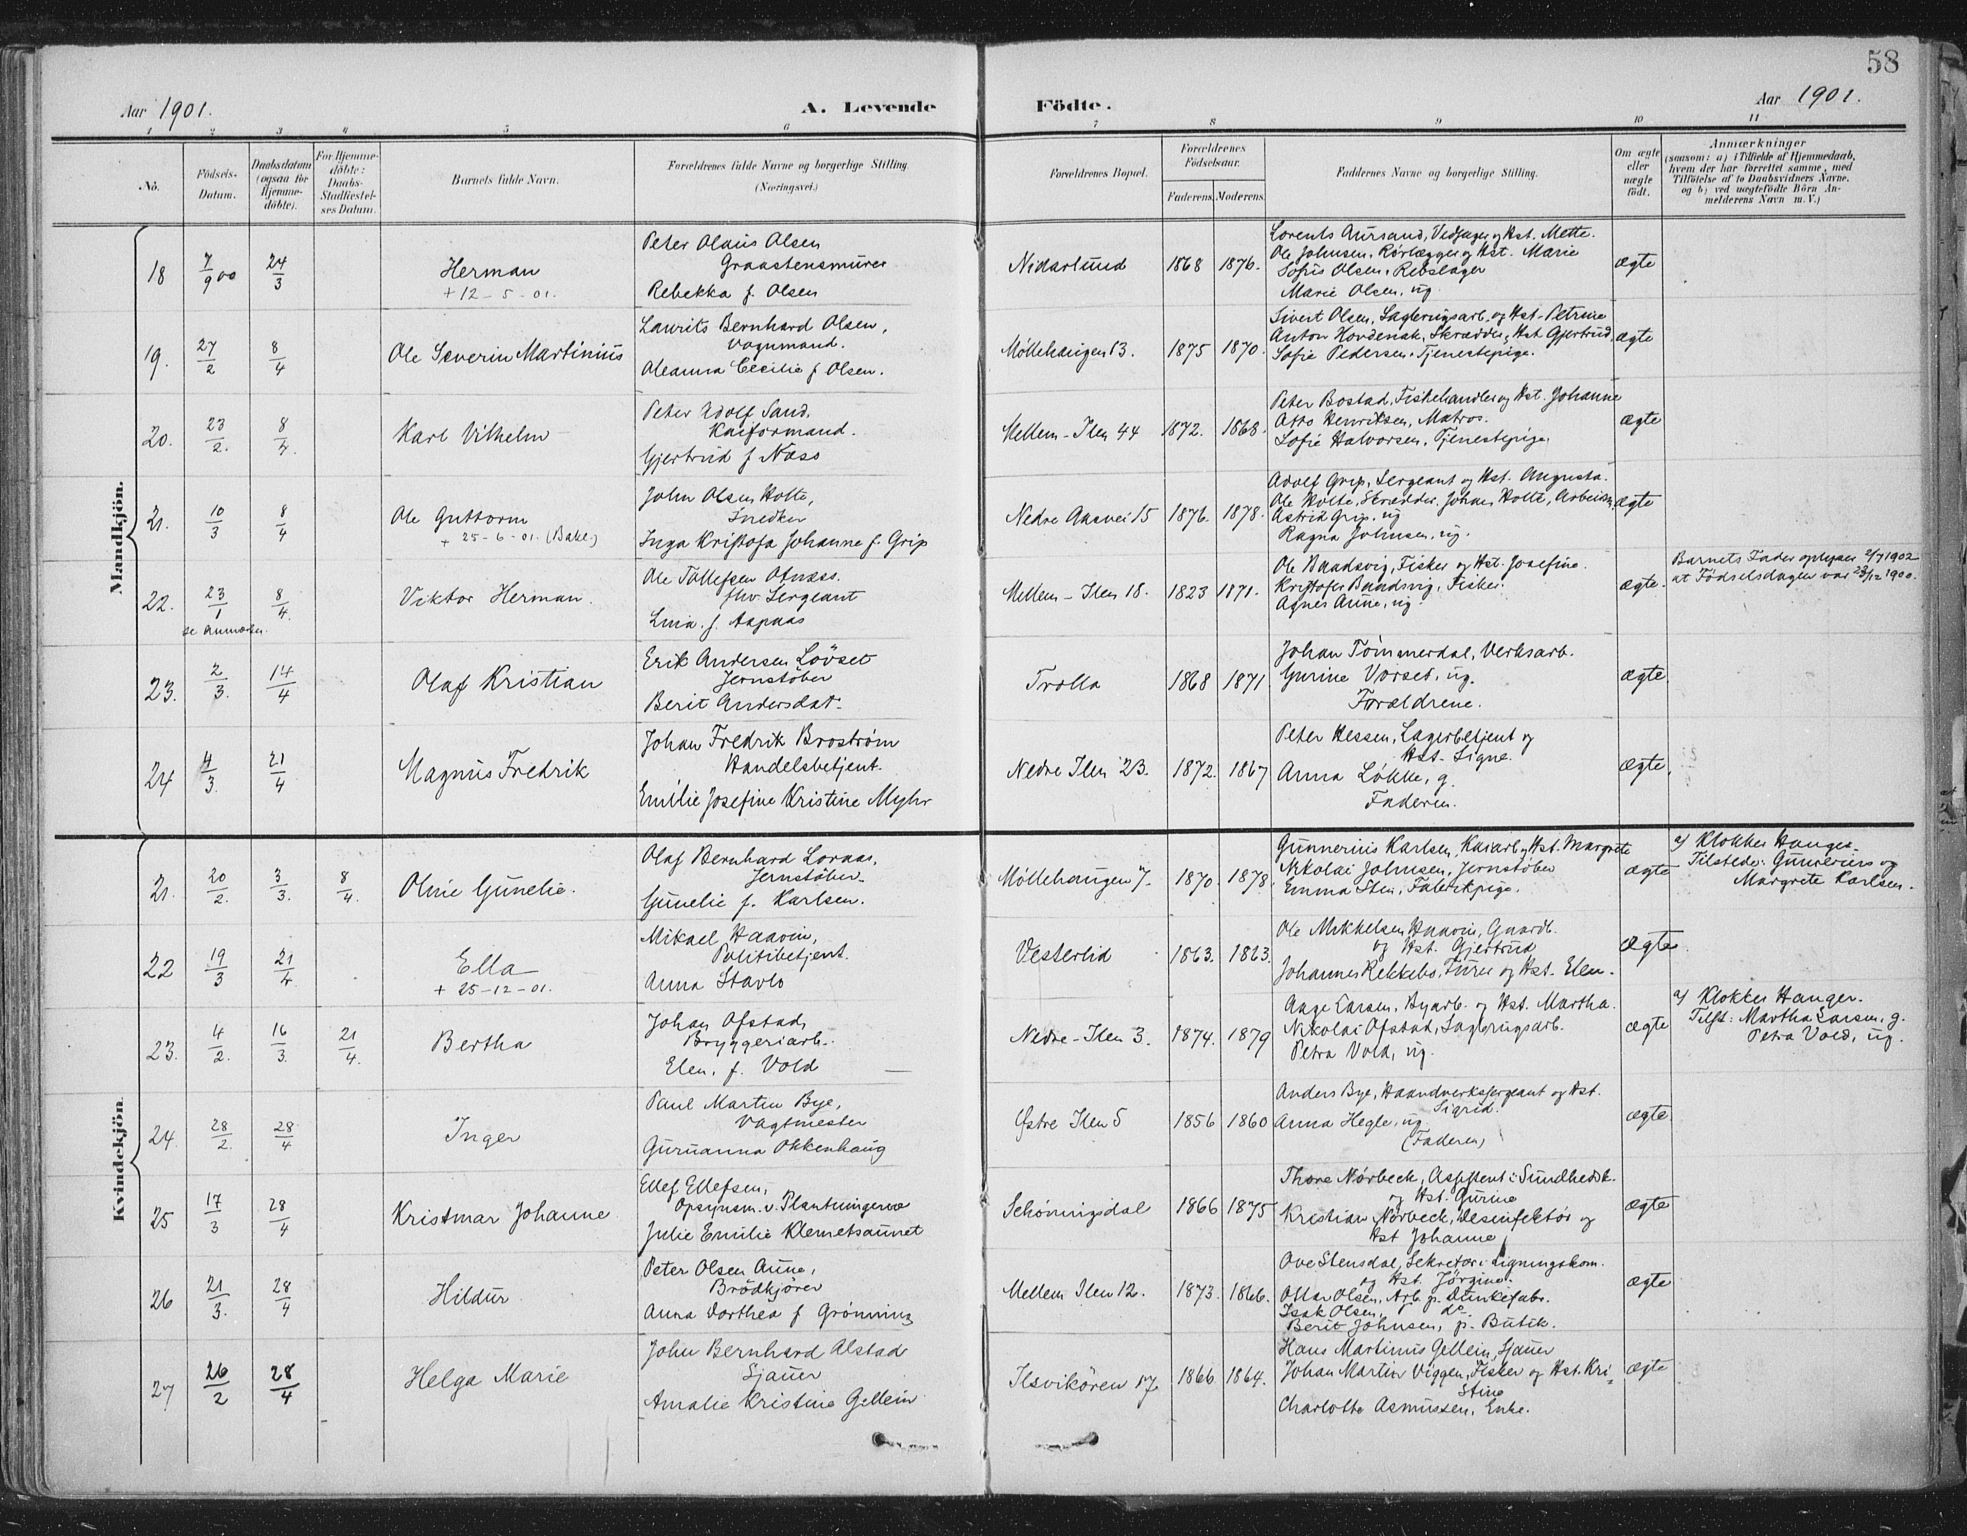 58
Aar 1901. A. Levende Födte. Aar 1901.
1 2 3 4 5 6 7 8 9 10 11
No. Födsels-Datum. Daabsdatum (ogsaa for Hjemme-döbte). For Hjemme-döbte: Daabs-Stadfæstel-ses Datum. Barnets fulde Navn. Forældrenes fulde Navne og borgerlige Stilling. (Næringsvei.) Forældrenes Bopæl. Forældrenes Födselsaar. Faderens. Moderens. Faddernes Navne og borgerlige Stilling. Om ægte eller uægte födt. Anmærkninger (saasom: a) i Tilfælde af Hjemmedaab, hvem der har forrettet samme, med Tilföielse af to Daabsvidners Navne, og b) ved uægtefödte Börn An-melderens Navn m. V.)
Mandkjön.
18 7/9 00 24/3 Herman
+ 12-5-01.
Peter Olaus Olsen
Graastensmurer
Rebekka f. Olsen
Nidarlund 1868 1876.
Lorents Aursand, Vedsager og Hst. Mette.
Ole Johnsen, Rørlægger og Hst. Marie
Sofus Olsen, Rebslager
Marie Olsen, ug.
ægte
19. 27/2 8/4 Ole Severin Martinius
Laurits Bernhard Olsen,
Vognmand.
Oleanna Cecilie f Olsen.
Møllehaugen 13. 1875 1870.
Sivert Olsen, Sagbrugsarb. og Hst. Petrine
Anton Hovdenak, Skrædder, Hst. Gjertrud,
Sofie Pedersen, Tjenestepige.
ægte
20. 23/2. 8/4. Karl Vilhelm
Peter Adolf Sand,
Kaiformand.
Gjertrud f Næss
Mellem-Ilen 44 1872. 1868.
Peter Bostad, Fiskehandler og Hst. Johanne
Otto Henriksen, Matros.
Sofie Halvorsen, Tjenestepige.
ægte
21. 10/3 8/4 Ole Guttorm
+ 25-6-01. (Bakl.)
John Olsen Holte,
Snedker
Inga Kristofa Johanne f. Grip
Nedre Aasvei 15 1876. 1878.
Adolf Grip, Sergeant og Hst. Augusta.
Ole Holte, Skrædder. Johan Holte, Arbeider,
Astrid Grip, ug
Ragna Johnsen, ug.
ægte
22. 23/1 8/4. Viktor Herman.
se Anmærkn.
Ole Tollefsen Ofnæss.
fhv. Sergeant
Lina. f. Aapaas
Mellem-Ilen 18. 1823 1871.
Ole Baadsvig, Fisker og Hst. Josefine.
Kristofer Baadsvig, Fisker.
Agnes Aune, ug.
ægte.
Barnets Fader oplyser 2/7 1902
at Fødselsdagen var 23/12 1900.
23. 2/3. 14/4 Olaf Kristian
Erik Andersen Løvset
Jernstöber
Berit Andersdat.
Trolla 1868 1871
Johan Tømmerdal, Verksarb.
Gurine Vorset, ug.
Forældrene.
ægte.
24 4/3. 21/4 Magnus Fredrik
Johan Fredrik Broström
Handelsbetjent.
Emilie Josefine Kristine Myhr
Nedre Ilen 23. 1872. 1867
Peter Hessen, Lagerbetjent og
Hst. Signe.
Anna Løkke, g.
Faderen.
ægte.
Kvindekjön.
21. 20/2. 3/3. 8/4. Oline Gunelie.
Olaf Bernhard Loraas,
Jernstöber.
Gunelie f. Karlsen.
Møllehaugen 7. 1870. 1878.
Gunnerius Karlsen, Kaiarb. og Hst. Margrete
Nikolai Johnsen, Jernstöber
Emma Sten, Fabrikpige.
ægte
a) Klokker Hanger.
Tilstede: Gunnerius og
Margrete Karlsen.
22 19/3 21/4. Ella
+ 25-12-01.
Mikael Haavin,
Politibetjent.
Anna Stavlo
Vesterlid 1863. 1863.
Ole Mikkelsen Haavin, Gaardb.
og Hst. Gjertrud
Johannes Rekkebo, Furer og Hst. Elen.
ægte.
23. 4/2. 16/3 21/4. Bertha
Johan Ofstad,
Bryggeriarb.
Elen, f. Vold
Nedre-Ilen 3. 1874. 1879
Aage Larsen, Byarb. og Hst. Martha.
Nikolai Ofstad, Sagbrugsarb.
Petra Vold, ug.
ægte
a) Klokker Hanger.
Tilst: Martha Larsen, g.
Petra Vold, ug.
24. 28/2. 28/4 Inger
Paul Martin Bye,
Vagtmester
Guruanna Okkenhaug
Østre Ilen 5 1856 1860
Anders Bye, Haandverkssergeant og Hst.
Sigrid.
Anna Hegle, ug.
(Faderen)
ægte.
25 17/3 28/4 Kristmar Johanne
Ellef Ellefsen,
Opsynsm. v. Plantningerne
Julie Emilie Klemetsaunet
Schøningsdal 1866 1875
Thore Nørbeck, Assistent i Sundhedsk.
og Hst. Gurine
Kristian Nørbeck, Desinfektør og
Hst Johanne
ægte
26 21/3. 28/4 Hildur.
Peter Olsen Aune,
Brödkjörer
Anna Dorthea f Grønning
Mellem Ilen 12. 1873. 1866.
Ove Stensdal, Sekretær i Ligningskom.
og Hst. Jørgine.
Ottar Olsen, Arb. p. Dunkefabr.
Isak Olsen, do.
Berit Johnsen, p. Butik.
ægte
27 26/2 28/4 Helga Marie
John Bernhard Alstad
Sjauer
Amalie Kristine Gellein
Ilsvikören 17. 1866. 1864.
Hans Martinus Gellein, Sjauer
Johan Martin Viggen, Fisker og Hst. Kri-
stine
Charlotte Asmussen, Enke.
ægte